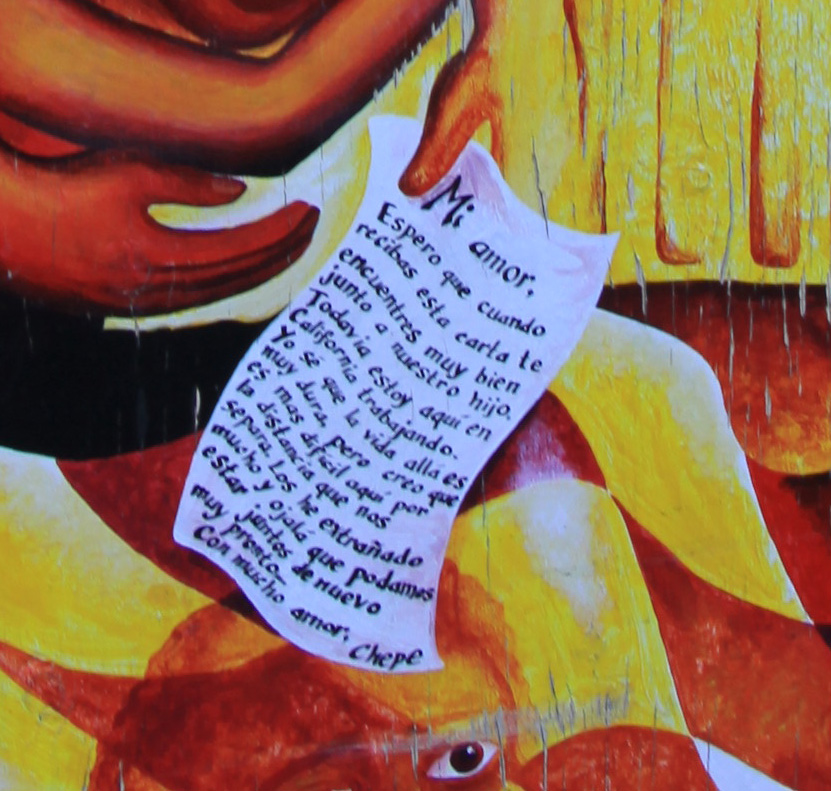 Mi amor,
Espero que cuando
recibas esta carta te
encuentres muy bien
junto a nuestro hijo.
Todavía estoy aquí en
California trabajando.
Yo sé que la vida allá es
muy dura, pero creo que
es mas difícil aquí por
la distancia que nos
separa. Los he extrañado
mucho y ojalá que podamos
estar juntos de nuevo
muy pronto.
Con mucho amor,
Chepe